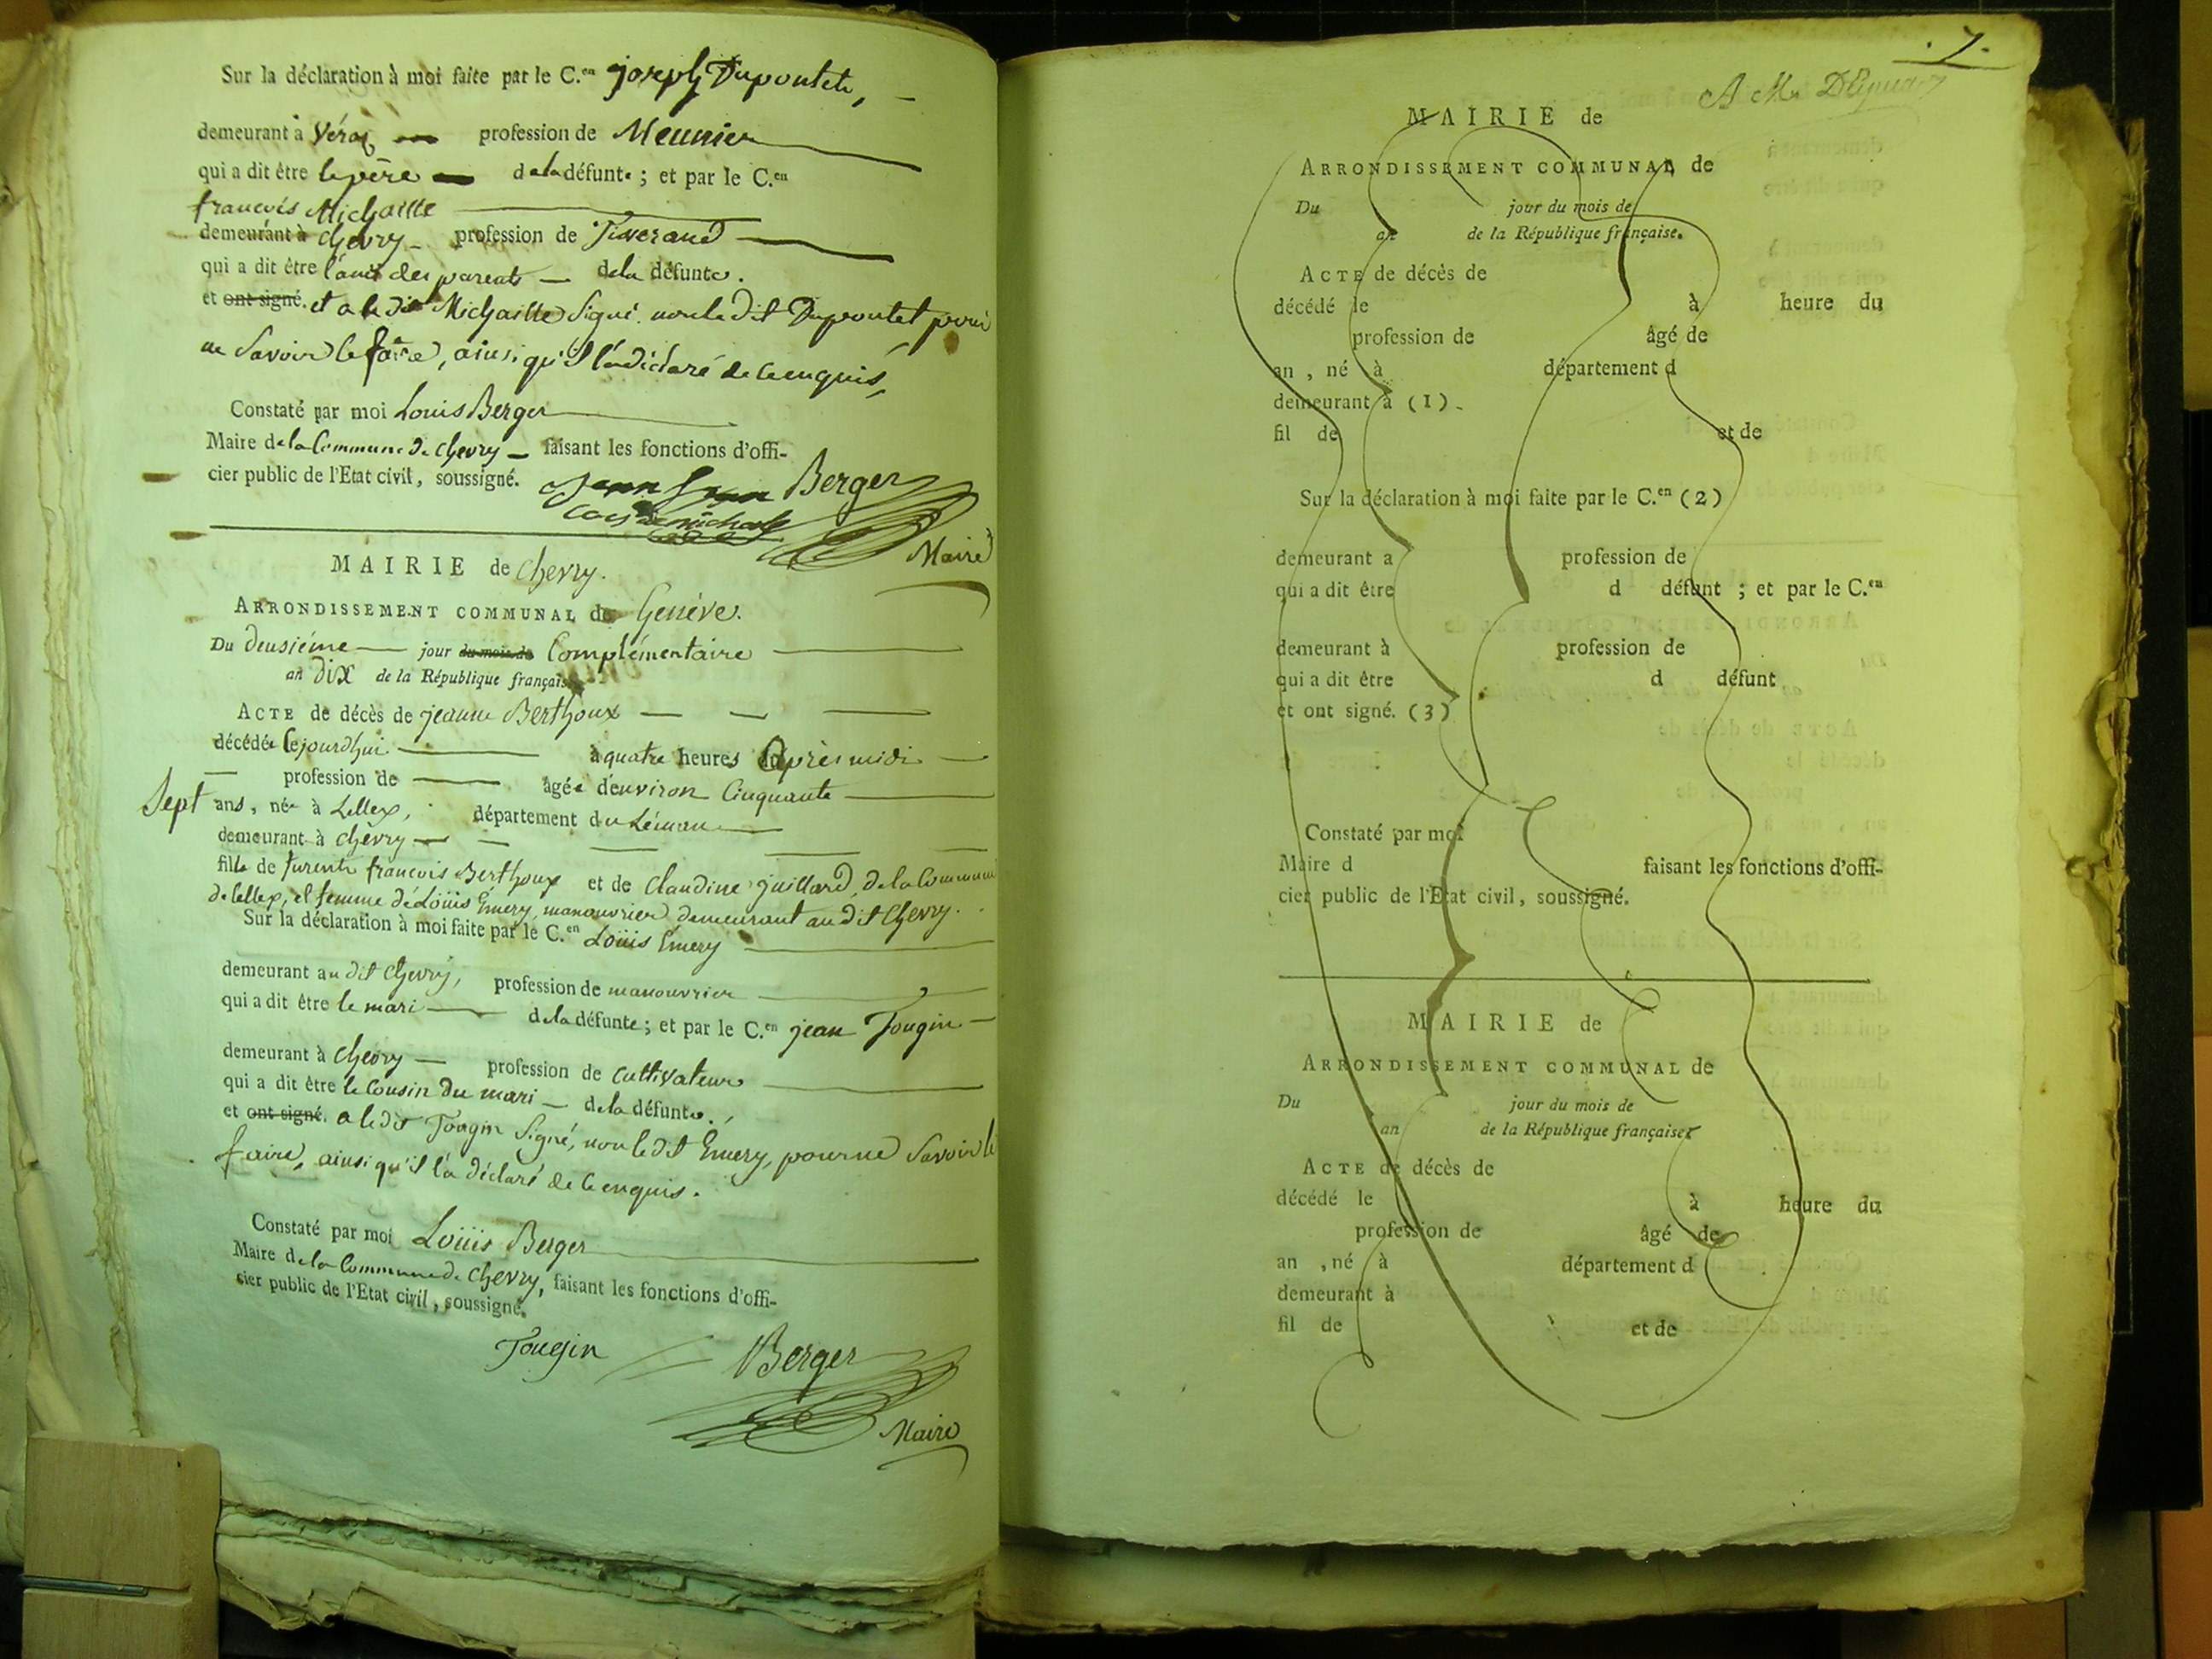 Sur la déclaration à moi faite par le C.en joseph Dupontet,
demeurant à Véraz profession de Meunier
qui a dit être le père de la défunte ; et par le C.en
francois Michaille
demeurant à chevry profession de Tisserand
qui a dit être l'ami des parents de la défunte.
et ont signé. et a le dit Michaille signé non le dit Dupontet pour
ne savoir le faire, ainsi qu'il l'a déclaré de ce enquis,
Constaté par moi Louis Berger
Maire de la Commune de chevry faisant les fonctions d'offi-
cier public de l'Etat civil, soussigné.
Berger
Maire
MAIRIE de chevry.
ARRONDISSEMENT COMMUNAL de Genève.
Du deusiéme jour du mois de Complémentaire
an dix de la République française
ACTE de décès de jeanne Berthoux
décédée cejourdhui à quatre heures du après midi
profession de âgée d'environ Cinquante
Sept ans, née à Lellex, département du Léman
demeurant à chevry
fille de furent francois Berthoux et de Claudine juillard, de la Commune
de Lellex, et femme de Loüis Émery, manouvrier demeurant au dit chevry.
Sur la déclaration à moi faite par le C.en Loüis Émery
demeurant au dit chevry, profession de manouvrier
qui a dit être le mari de la défunte ; et par le C.en jean Tougin
demeurant à chevry profession de cultivateur
qui a dit être le Cousin du mari de la défunte.
et ont signé. a le dit Tougin signé, non le dit Emery, pour ne savoir le
faire, ainsi qu'il l'a déclaré de ce enquis.
Constaté par moi Loüis Berger
Maire de la Commune de chevry, faisant les fonctions d'offi-
cier public de l'Etat civil, soussigné.
Tougin Berger
Maire
7.
MAIRIE de
ARRONDISSEMENT COMMUNAL de
Du jour du mois de
an de la République française.
ACTE de décès de
décédé le à heure du
profession de âgé de
an , né à département d
demeurant à (1)
fil de et de
Sur la déclaration à moi faite par le C.en (2)
demeurant a profession de
qui a dit être d défunt ; et par le C.en
demeurant à profession de
qui a dit être d défunt
et ont signé. (3)
Constaté par moi
Maire d faisant les fonctions d'offi-
cier public de l'Etat civil, soussigné.
MAIRIE de
ARRONDISSEMENT COMMUNAL de
Du jour du mois de
an de la République française
ACTE de décès de
décédé le à heure du
profession de âgé de
an , né à département d
demeurant à
fil de et de